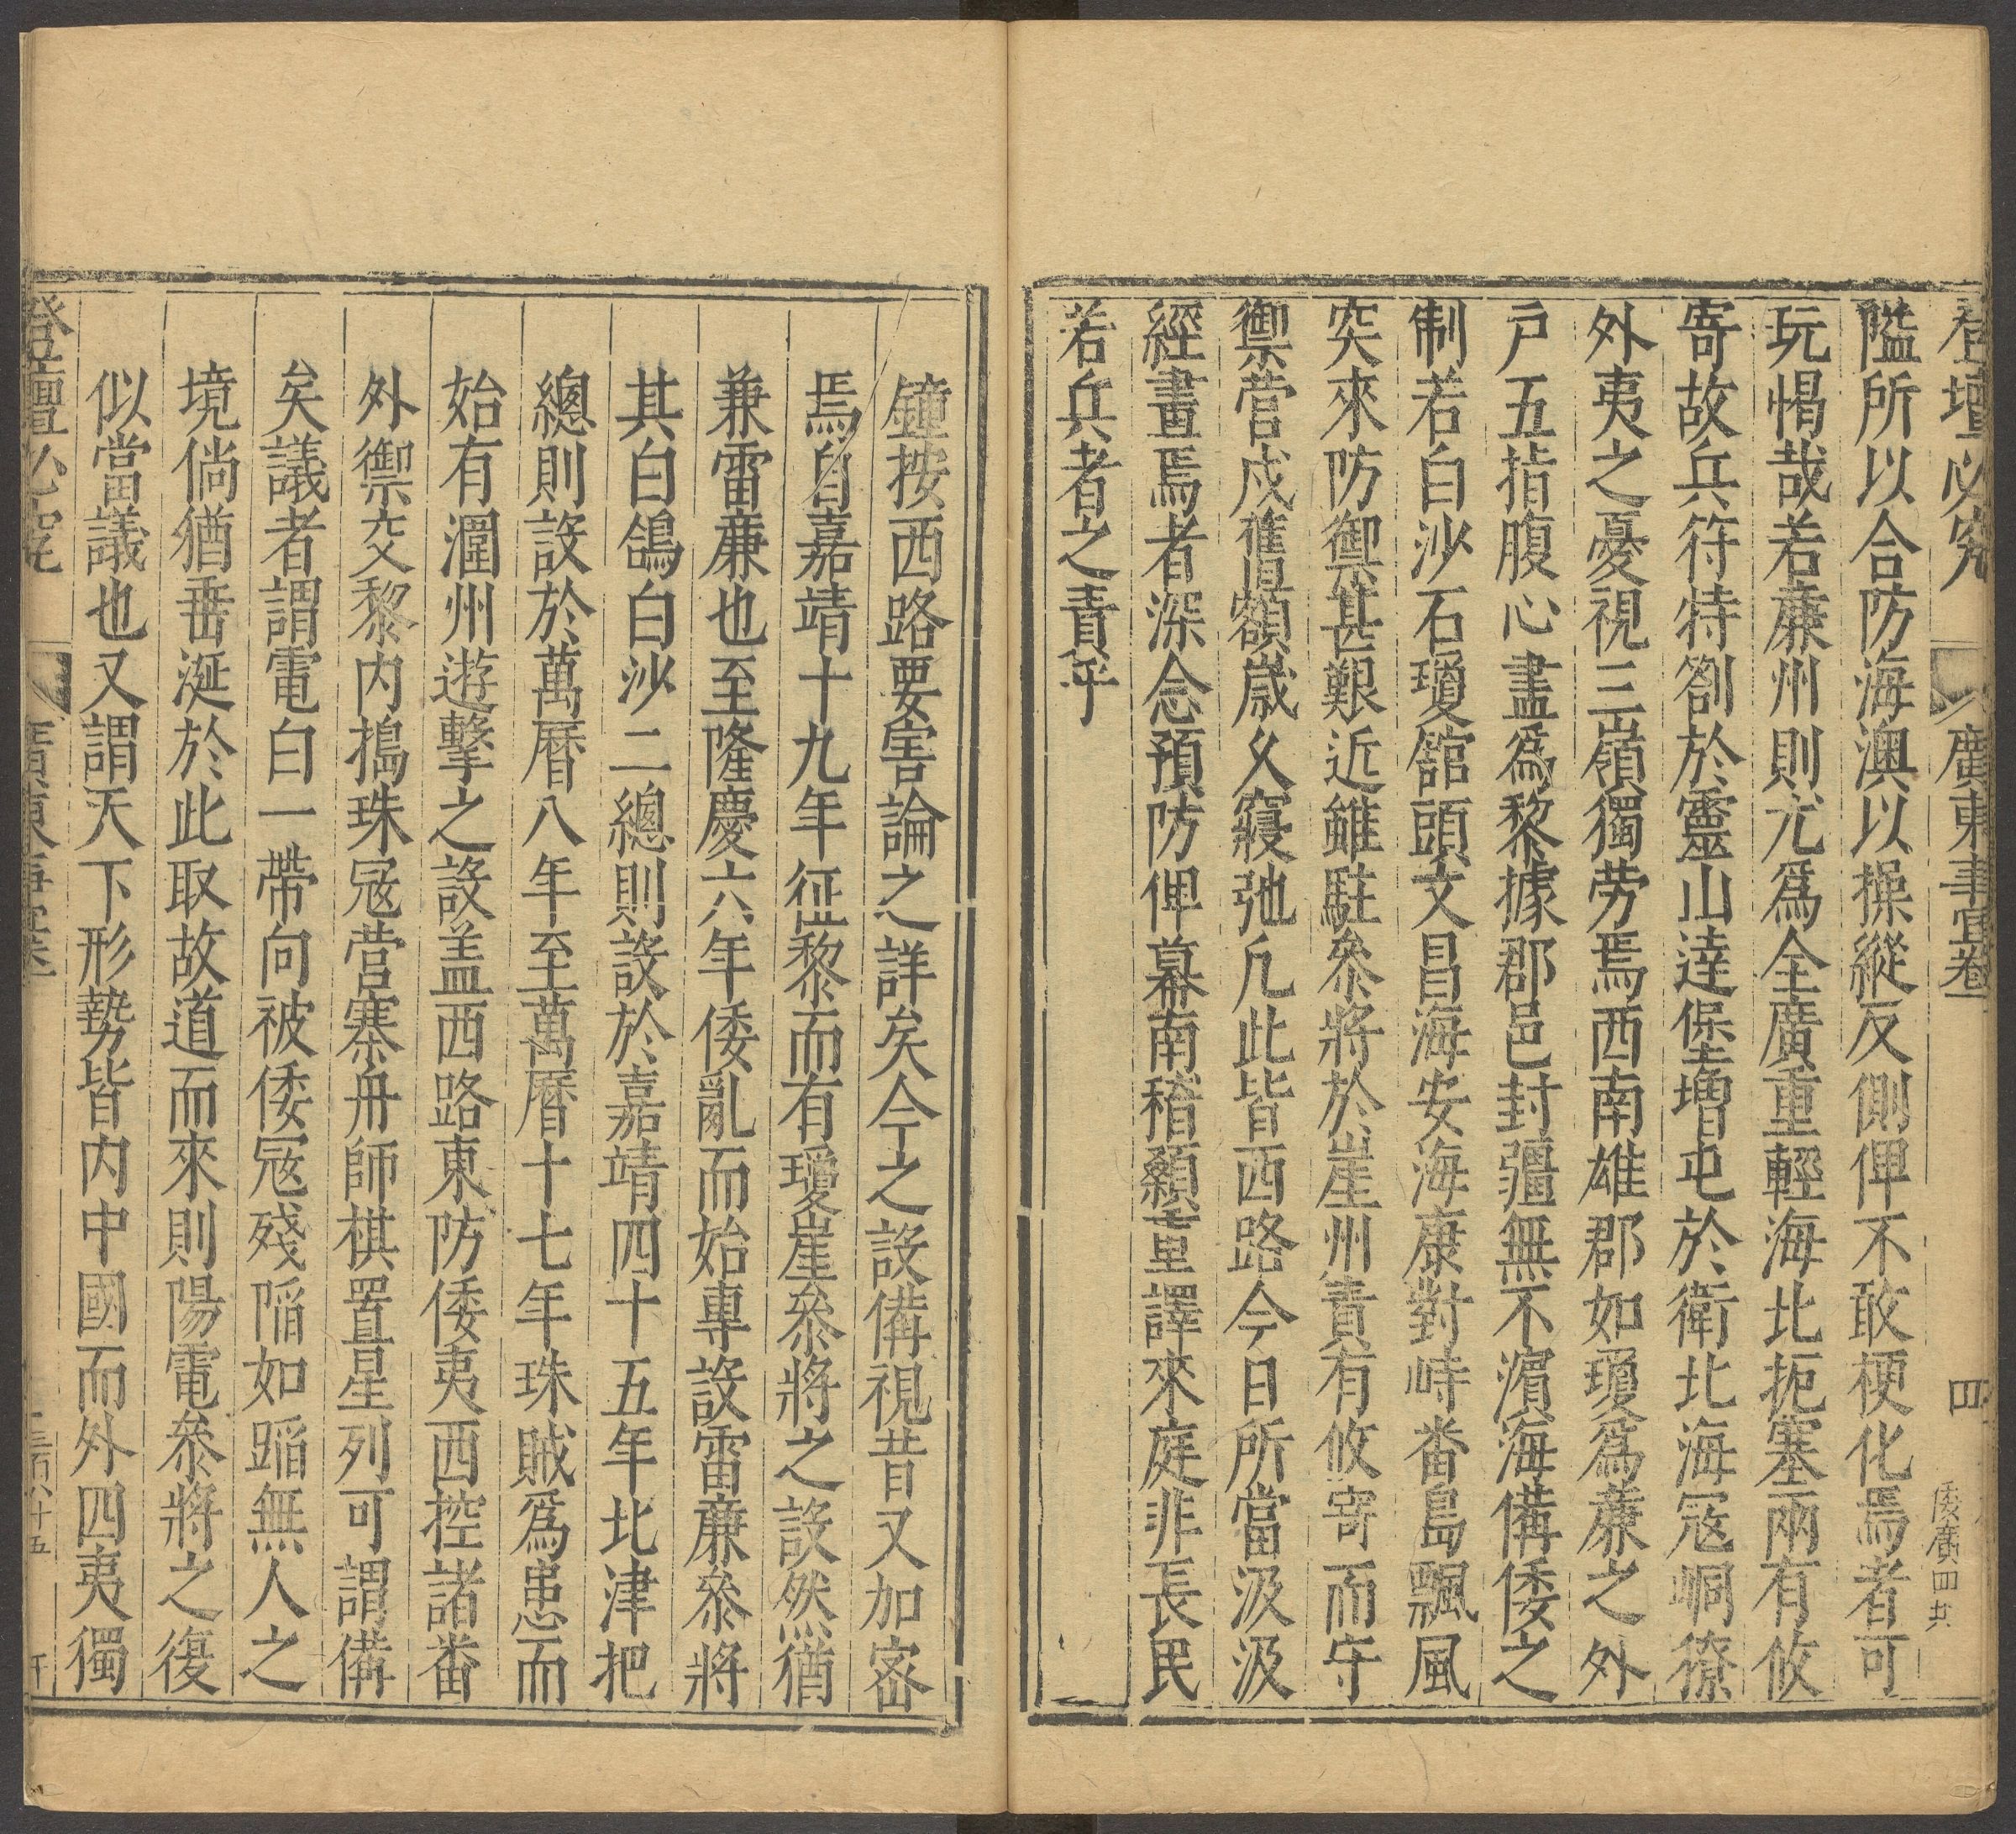 登壇必究 廣東事宜卷一 四 倭廣四共
隘所以合防海澳以操縱反側俾不敢梗化焉者可
玩愒哉若㢘州則尤爲全廣重輕海北扼塞兩有攸
寄故兵符特劄於靈山達堡增屯於衛北海冦峒獠
外夷之憂視三嶺獨劳焉西南雄郡如瓊爲㢘之外
戸五指腹心盡爲黎據郡邑封疆無不濵海備倭之
制若白沙石瓊舘頭文昌海安海康對峙番島飄風
突來防禦甚艱近雖駐叅將於崖州責有攸寄而守
禦营戍舊額歲久寢弛凡此皆西路今日所當汲汲
經畫焉者深念預防俾幕南稽顙重譯來庭非長民
若兵者之責乎
鐘按西路要害論之詳矣今之設備視昔又加宻
焉自嘉靖十九年征黎而有瓊崖叅將之設然猶
兼雷㢘也至隆慶六年倭亂而始專設雷㢘叅將
其白鴿白沙二總則設於嘉靖四十五年北津把
總則設於萬曆八年至萬曆十七年珠賊爲患而
始有潿州遊擊之設盖西路東防倭夷西控諸番
外禦交黎内搗珠冦营寨舟師棋置星列可謂備
矣議者謂電白一帶向被倭冦殘陷如蹈無人之
境倘猶垂涎於此取故道而來則陽電叅將之復
似當議也又謂天下形勢皆内中國而外四夷獨
登壇必究 廣東事宜卷一